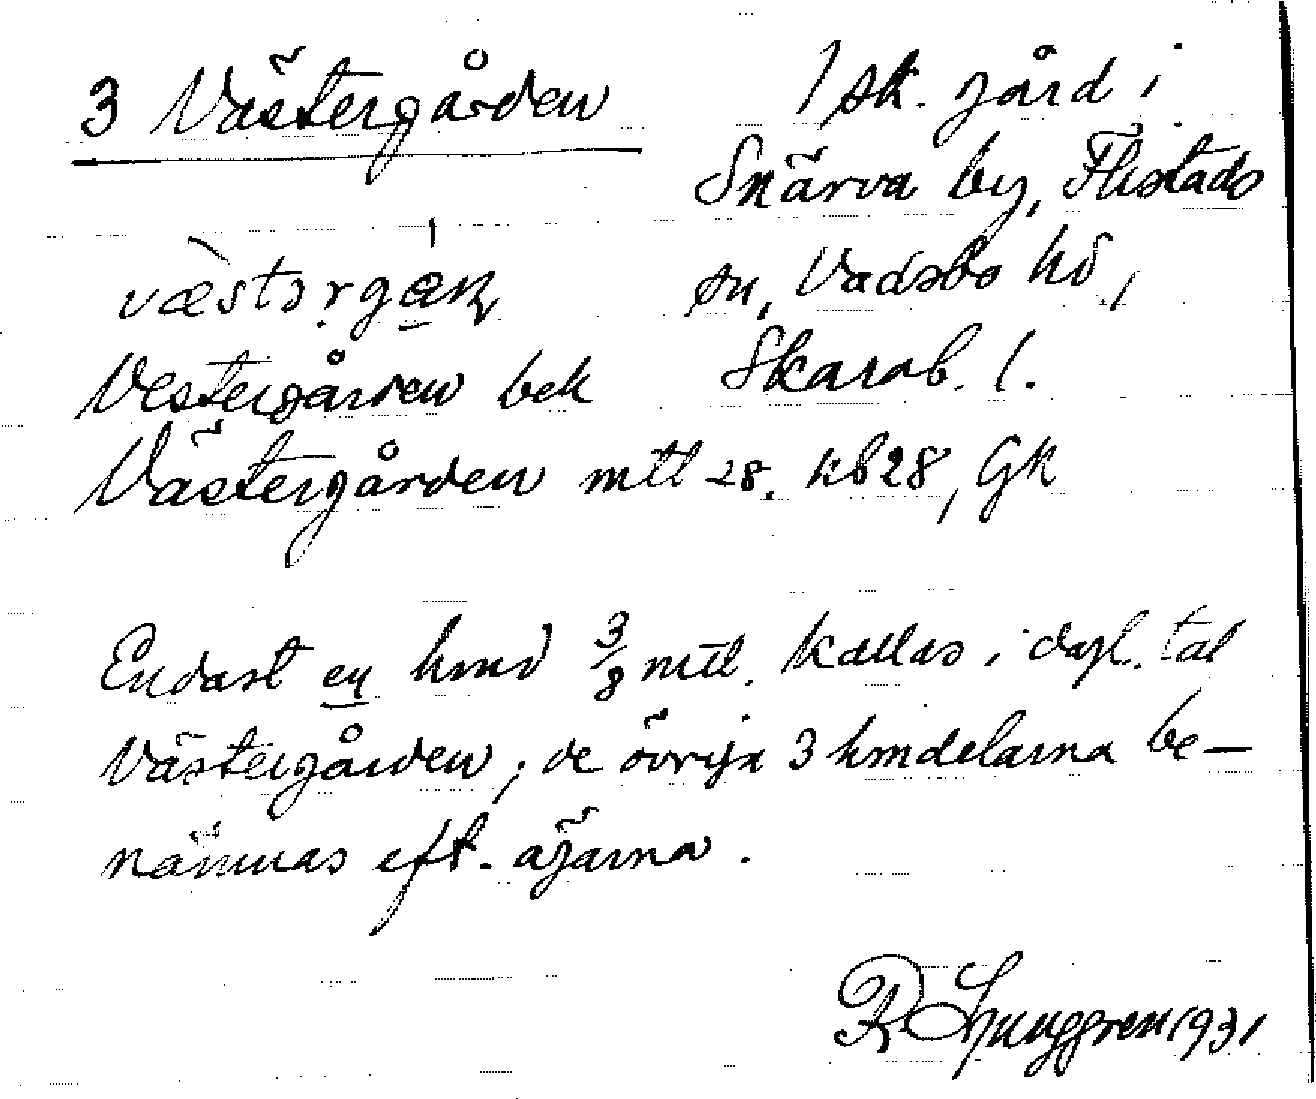 3 Västergården
1 sk. gård i
Snärva by, Flistads
sn, Vadsbo hd,
Skarab. l.
væstərgaɳ
Vestergården bek
Västergården mtl 28. kb 28, Gk
Endast en hmd 3/8 mtl. kallas i dagl. tal
Västergården; de övriga 3 hmdelarna be-
nämnas eft. ägarna.
R Ljunggren 1931